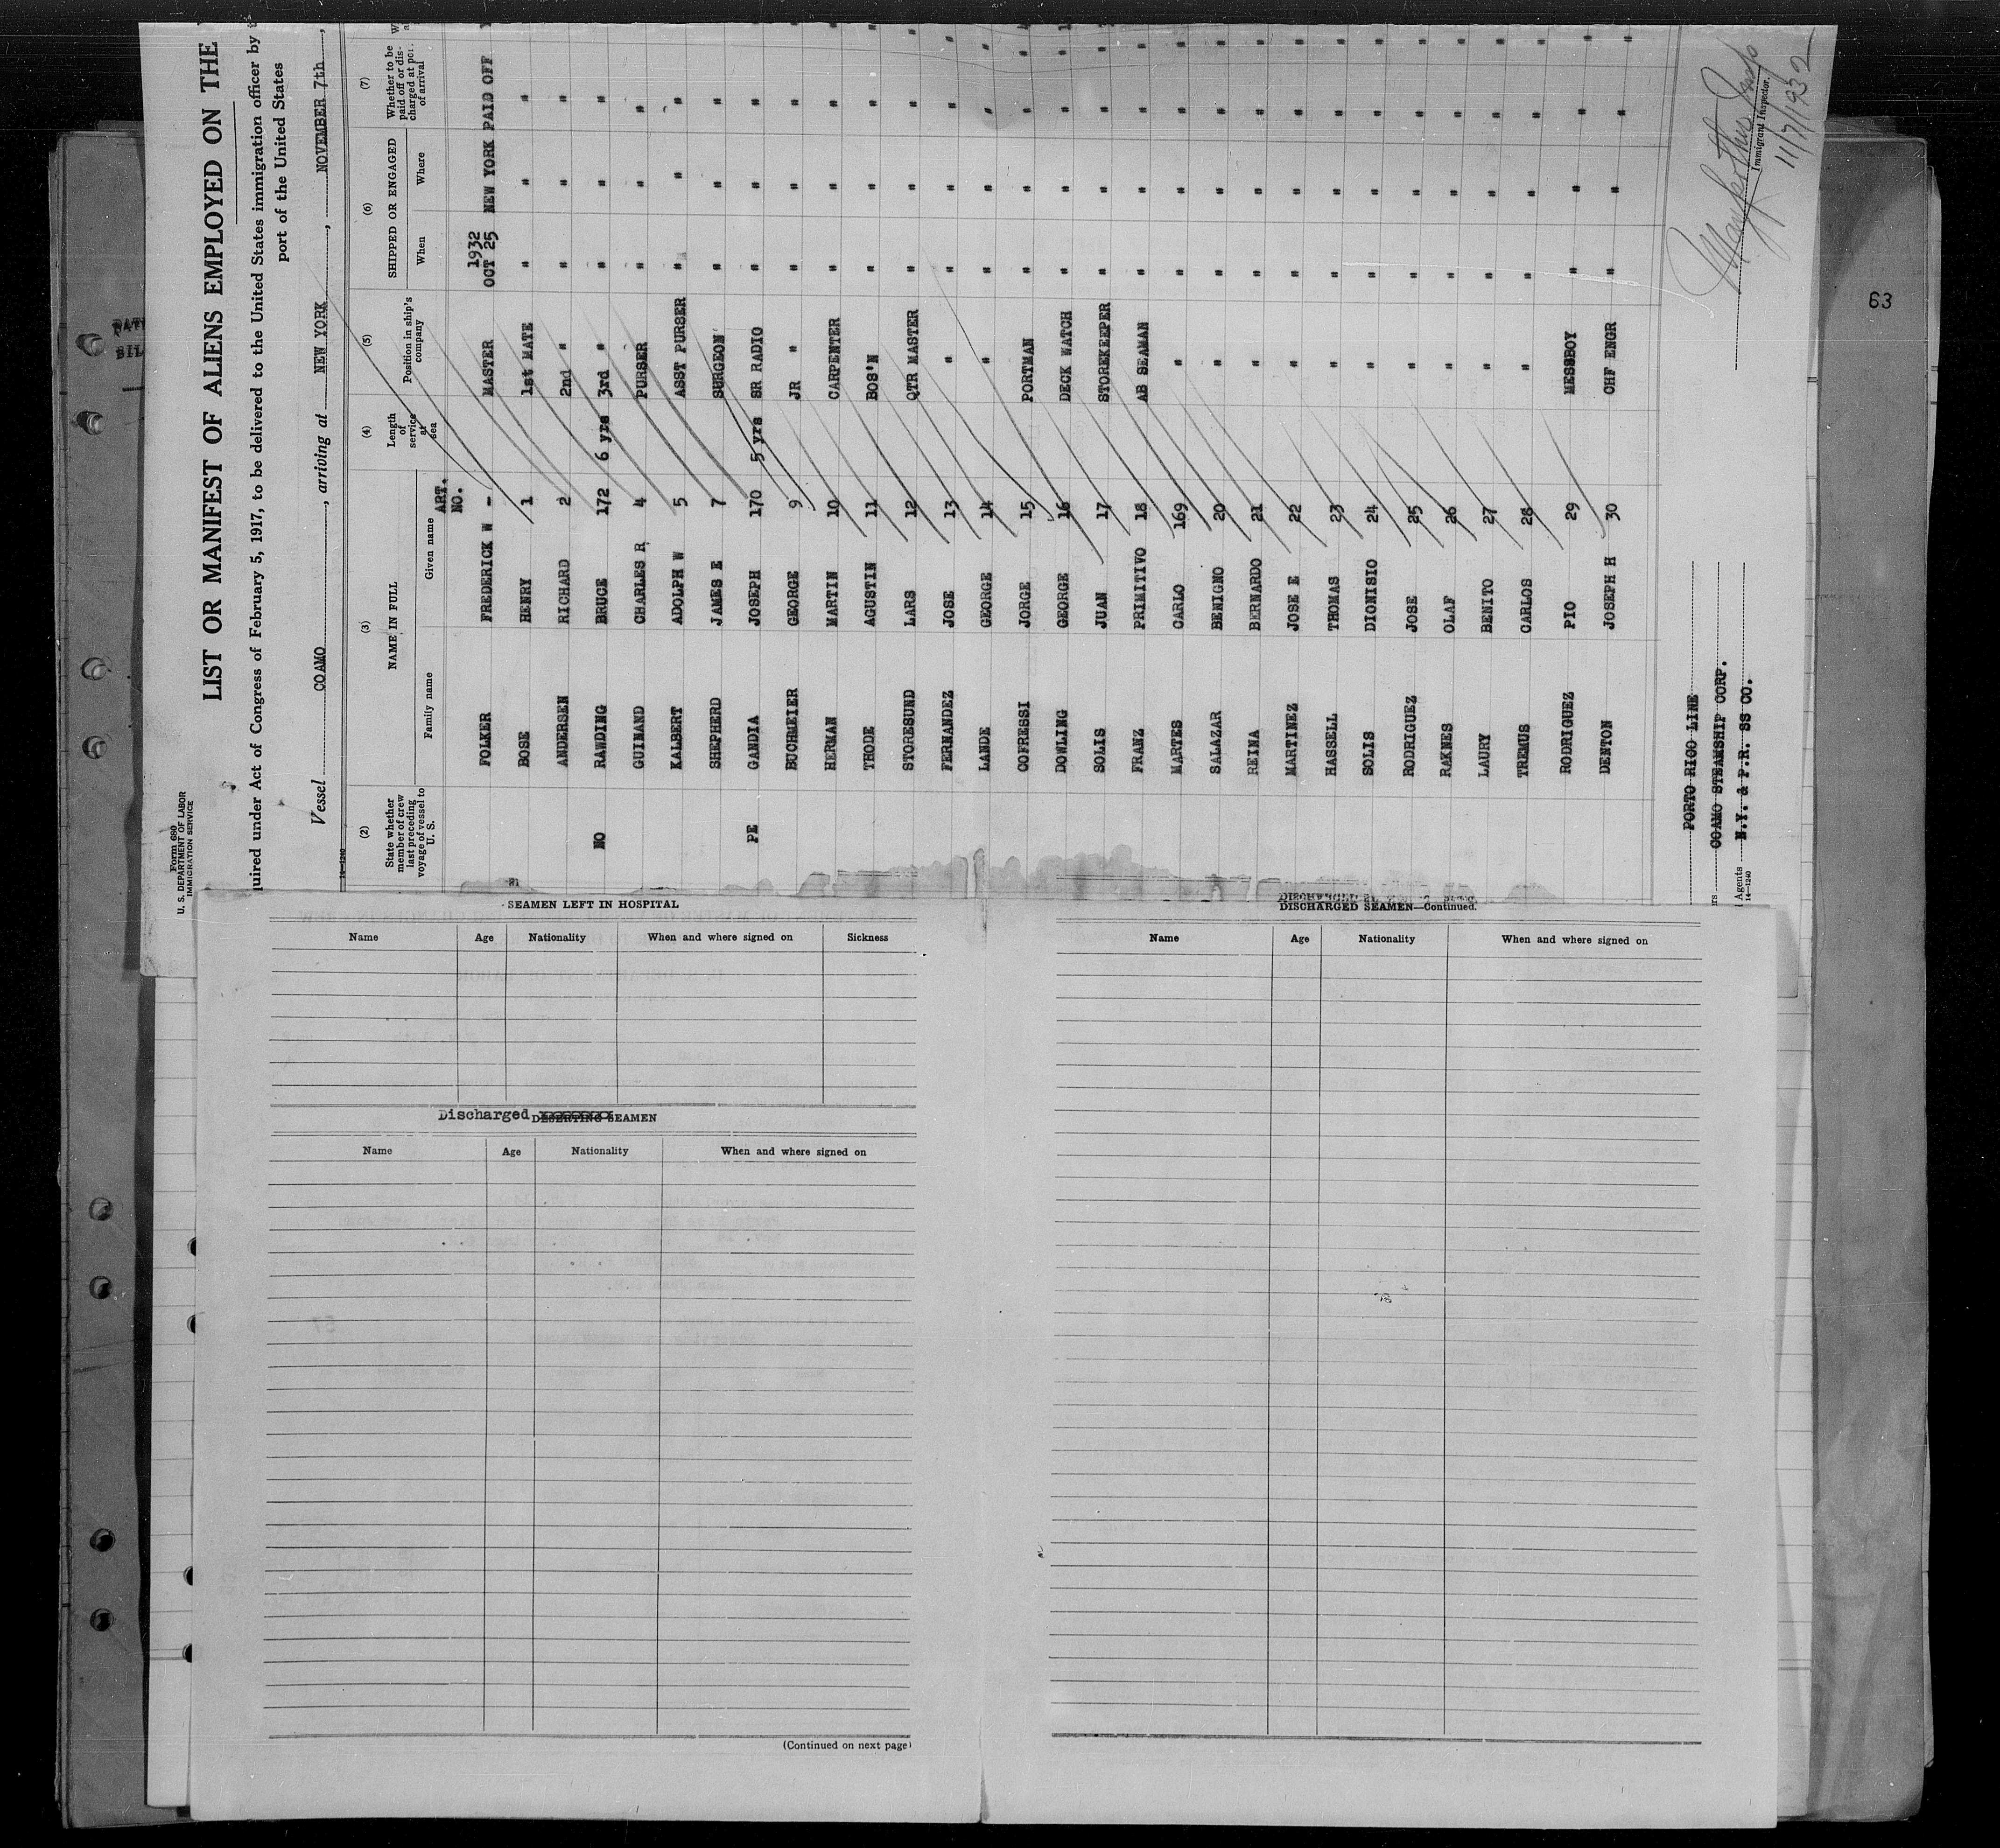 Form 680
U. S. DEPARTMENT OF LABOR
IMMIGRATION SERVICE
LIST OR MANIFEST OF ALIENS EMPLOYED ON THE
quired under Act of Congress of February 5, 1917, to be delivered to the United States immigration officer by
port of the United States
Vessel COAMO, arriving at NEW YORK, NOVEMBER 7th,
14—1240
(2) (3) (4) (5) (6) (7)
State whether member of crew last preceding voyage of vessel to U. S.
NAME IN FULL
Family name Given name
ART. NO.
Length of service at sea
Position in ship's company
SHIPPED OR ENGAGED
When Where
Whether to be paid off or discharged at port of arrival
1932
FOLKER FREDERICK W - MASTER OCT 25 NEW YORK PAID OFF
BOSE HENRY 1 1st MATE " " "
ANDERSEN RICHARD 2 2nd " " " "
NO RAWDING BRUCE 172 6 yrs 3rd " " " "
GUINAND CHARLES R 4 PURSER " " "
KALBERT ADOLPH W 5 ASST PURSER " " "
SHEPHERD JAMES E 7 SURGEON " " "
PE GANDIA JOSEPH 170 5 yrs SR RADIO " " "
BUCHMEIER GEORGE 9 JR " " " "
HERMAN MARTIN 10 CARPENTER " " "
THODE AGUSTIN 11 BOS'N " " "
STORESUND LARS 12 QTR MASTER " " "
FERNANDEZ JOSE 13 " " " "
LANDE GEORGE 14 " " " "
COFRESSI JORGE 15 PORTMAN " " "
DOWLING GEORGE 16 DECK WATCH " " "
SOLIS JUAN 17 STOREKEEPER " " "
FRANZ PRIMITIVO 18 AB SEAMAN " " "
MARTES CARLO 169 " " " "
SALAZAR BENIGNO 20 " " " "
REINA BERNARDO 21 " " " "
MARTINEZ JOSE E 22 " " " "
HASSELL THOMAS 23 " " " "
SOLIS DIONISIO 24 " " " "
RODRIGUEZ JOSE 25 " " " "
RAKNES OLAF 26 " " " "
LAURY BENITO 27 " " " "
TREMUS CARLOS 28 " " " "
RODRIGUEZ PIO 29 MESSBOY " " "
DENTON JOSEPH H 30 CHF ENGR " " "
PORTO RICO LINE
COAMO STEAMSHIP CORP.
Agents N.Y. & P.R. SS CO.
14—1240
Immigrant Inspector.
11/7/1932
63
SEAMEN LEFT IN HOSPITAL
Name Age Nationality When and where signed on Sickness
Discharged DESERTING SEAMEN
Name Age Nationality When and where signed on
(Continued on next page)
DISCHARGED SEAMEN—Continued.
Name Age Nationality When and where signed on